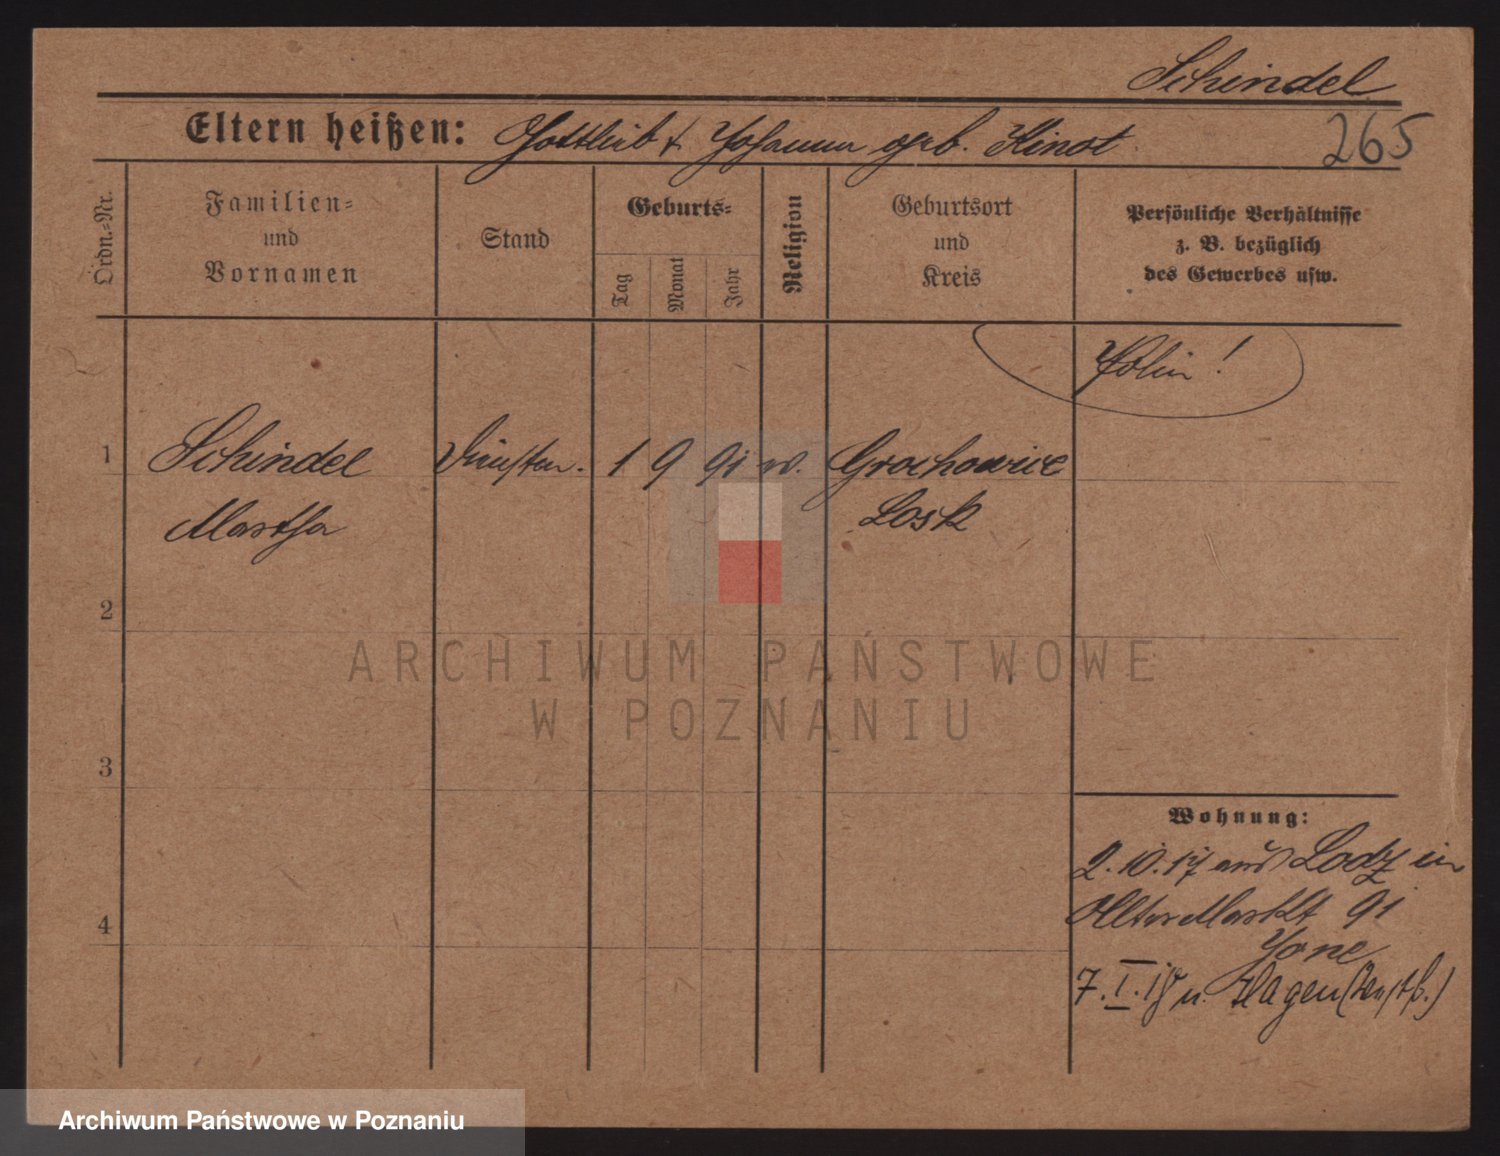 Schindel
265
Eltern heißen: Gottlieb & Johanna geb. Kinot
Ordn.-Nr.
Familien-
und
Vornamen
Stand
Geburts-
Tag
Monat
Jahr
Religion
Geburtsort
und
Kreis
Persönliche Verhältnisse
z. B. bezüglich
des Gewerbes usw.
Polin!
1 Schindel 1 9 91 Grochowice
Martha Losk
2
3
4
Wohnung:
2.10.17 aus Lodz in
Alter Markt 91
7.I.18 n. Hagen (Westf.)
ARCHIWUM PAŃSTWOWE
W POZNANIU
Archiwum Państwowe w Poznaniu